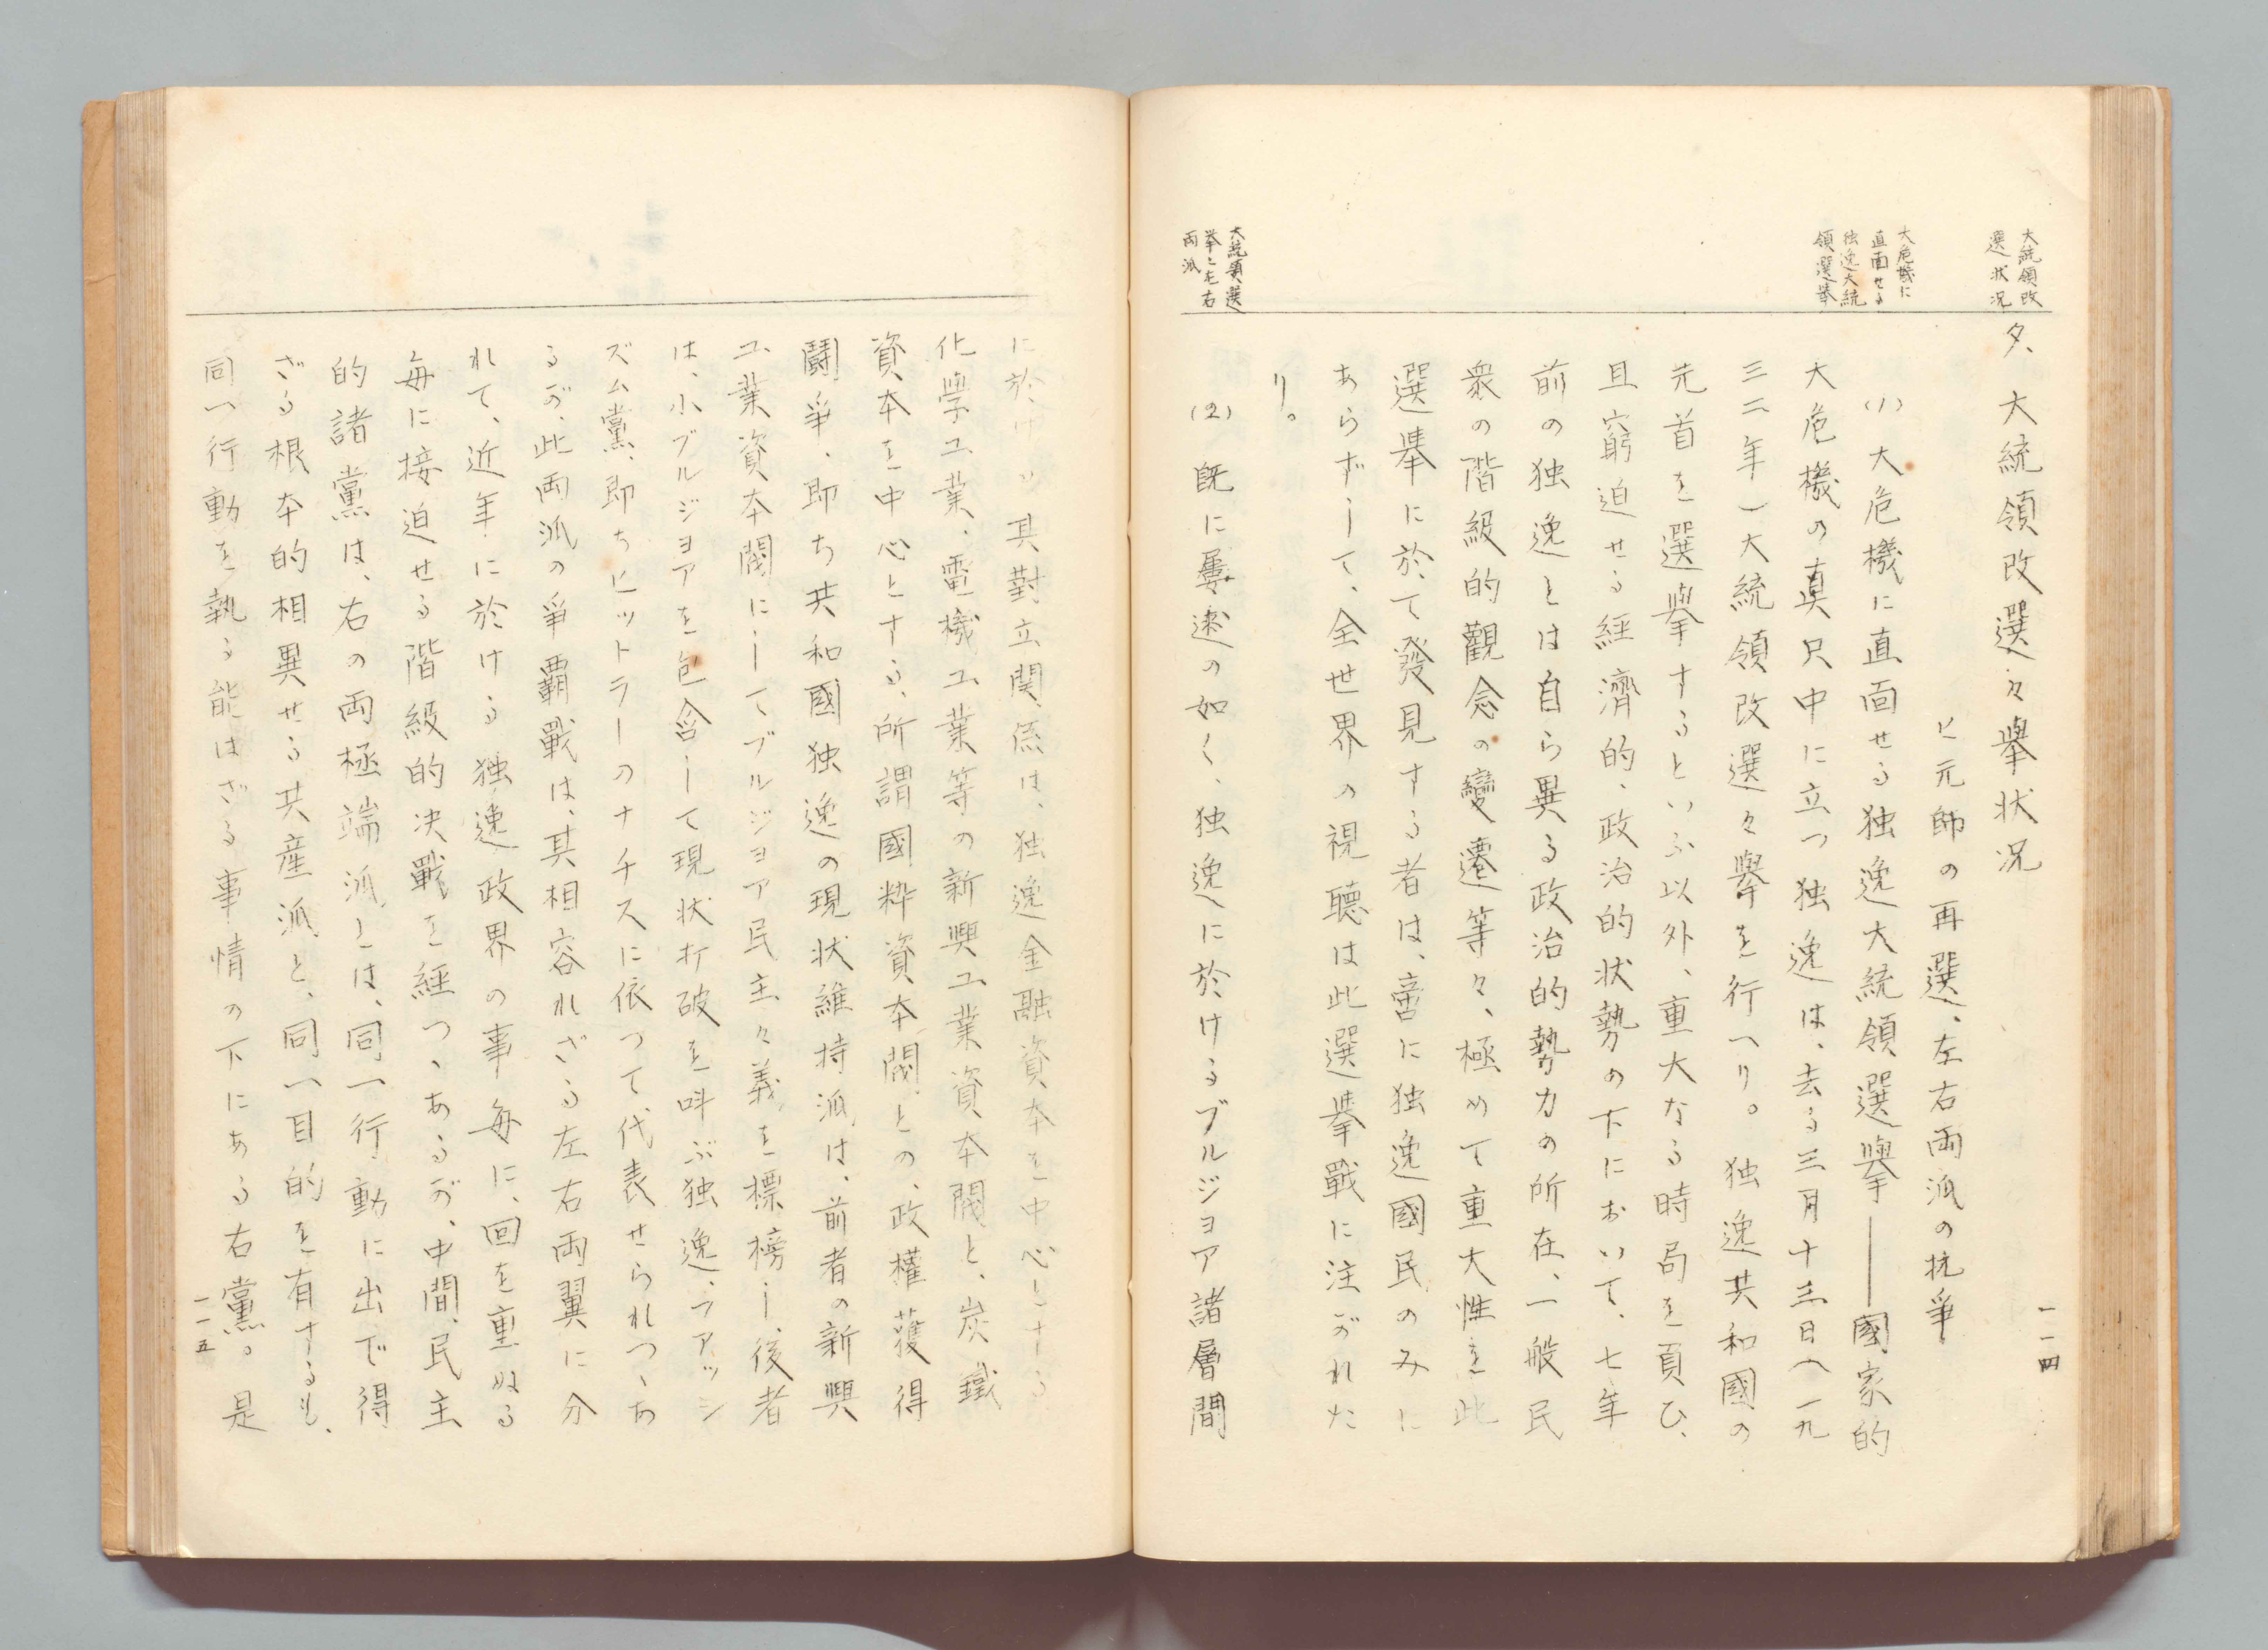 大統領改
選状況
夕、大統領改選々擧状况
ヒ元師の再選、左右両派の抗爭
大危機に
直面せる
独逸大統
領選挙
(1) 大危機に直面せる独逸大統領選擧――國家的
大危機の真只中に立つ独逸は、去る三月十三日(一九
三二年)大統領改選々擧を行へり。独逸共和國の
元首を選擧するといふ以外、重大なる時局を負ひ、
且窮迫せる経濟的、政治的状勢の下において、七年
前の独逸とは自ら異る政治的勢力の所在、一般民
衆の階級的觀念の變遷等々、極めて重大性を此
選擧に於て發見する者は、啻に独逸國民のみに
あらずして、全世界の視聴は此選擧戰に注がれた
り。
大統領選
挙と左右
両派
(2) 既に屢述の如く、独逸に於けるブルジョア諸層間
一一四
に於ける其對立関係は、独逸金融資本を中心とする
化學工業、電機工業等の新興工業資本閥と、炭鐵
資本を中心とする、所謂國粋資本閥との、政權獲得
鬪爭、即ち共和國独逸の現状維持派は、前者の新興
工業資本閥にしてブルジョア民主々義を標榜し、後者
は、小ブルジョアを包含して現状打破を呌ぶ独逸、フアッシ
ズム黨、即ちヒットラーのナチスに依つて代表せられつゝあ
るが、此両派の爭覇戰は、其相容れざる左右両翼に分
れて、近年に於ける独逸政界の事毎に、回を重ぬる
毎に接迫せる階級的決戰を経つゝあるが、中間、民主
的諸黨は、右の両極端派とは、同一行動に出で得
ざる根本的相異せる共産派と、同一目的を有するも、
同一行動を執る能はざる事情の下にある右黨。是
一一五